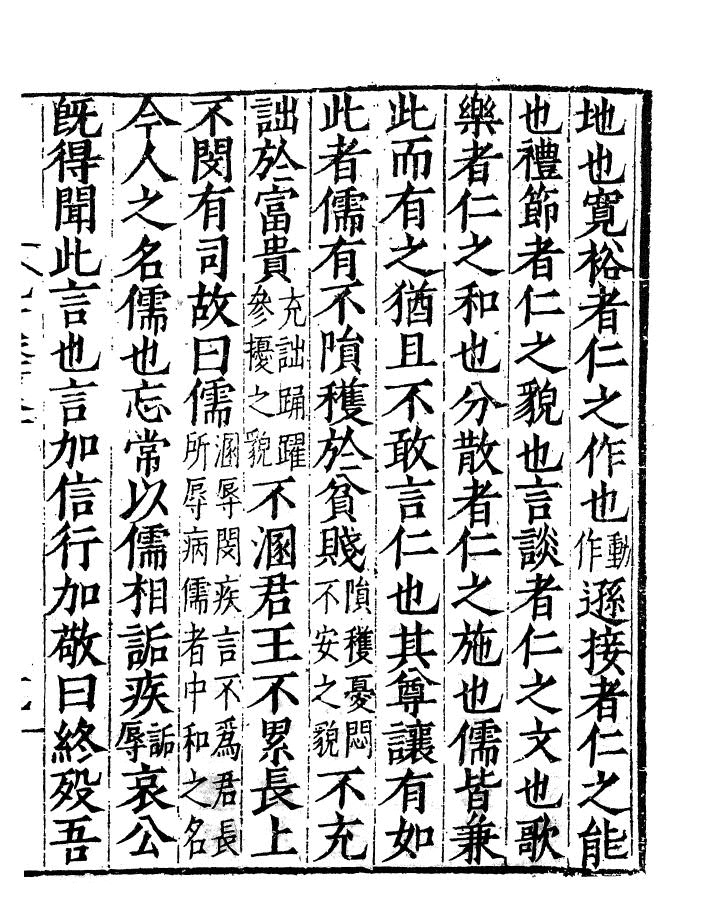 地也寬裕者仁之作也動作遜接者仁之能
也禮節者仁之貌也言談者仁之文也歌
樂者仁之和也分散者仁之施也儒皆兼
此而有之猶且不敢言仁也其尊讓有如
此者儒有不隕穫於貧賤隕穫憂悶不安之貌不充
詘於富貴充詘踊躍參擾之貌不溷君王不累長上
不閔有司故曰儒溷辱閔疾言不為君長所辱病儒者中和之名
今人之名儒也忘常以儒相詬疾詬辱哀公
既得聞此言也言加信行加敬曰終歿吾